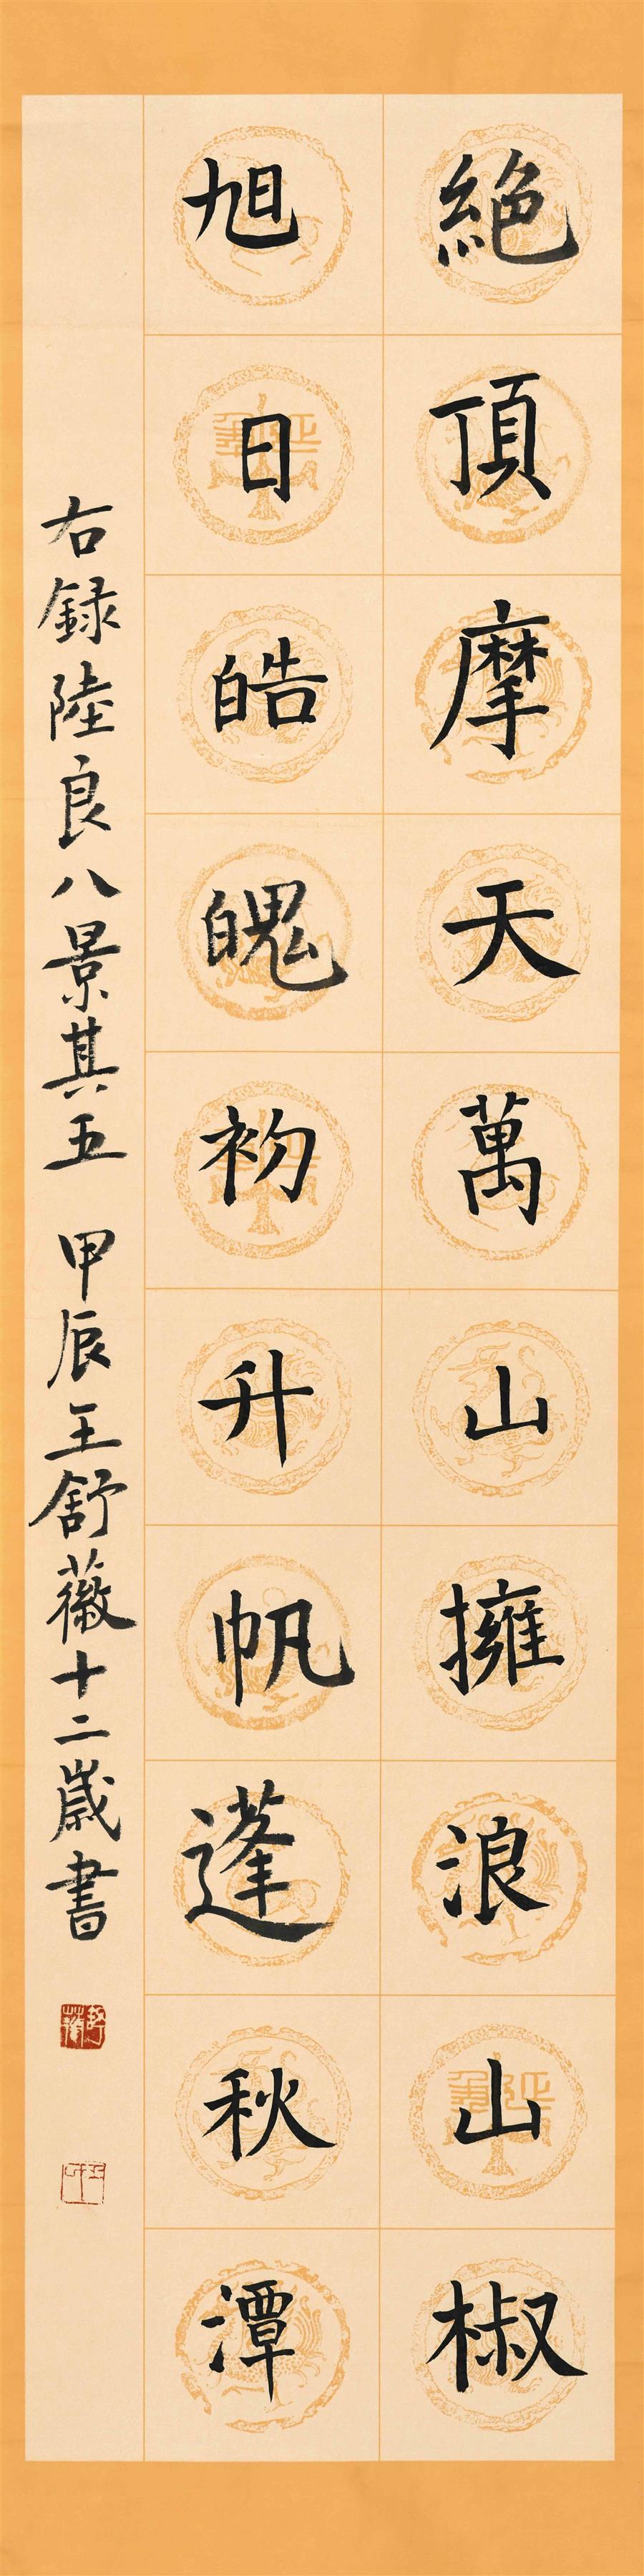 絶頂摩天萬山擁浪山椒
旭日皓魄初升帆蓬秋潭
右録陸良八景其五 甲辰王舒薇十二歲書
舒薇